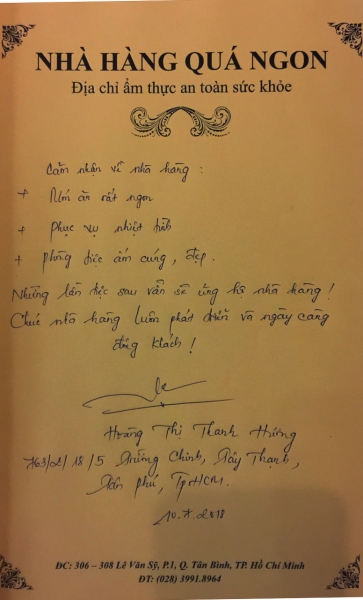 NHÀ HÀNG QUÁ NGON
Địa chỉ ẩm thực an toàn sức khỏe
Cảm nhận về nhà hàng :
+ Món ăn rất ngon
+ Phục vụ nhiệt tình
+ phòng tiệc ấm cúng, đẹp.
Những lần tiệc sau vẫn sẽ ủng hộ nhà hàng !
Chúc nhà hàng luôn phát triển và ngày càng
đông khách !
Hoàng Thị Thanh Hương
763/2/18/5 Trường Chinh, Tây Thạnh,
Tân phú, TpHCM.
10.7.2018
ĐC: 306 – 308 Lê Văn Sỹ, P.1, Q. Tân Bình, TP. Hồ Chí Minh
ĐT: (028) 3991.8964